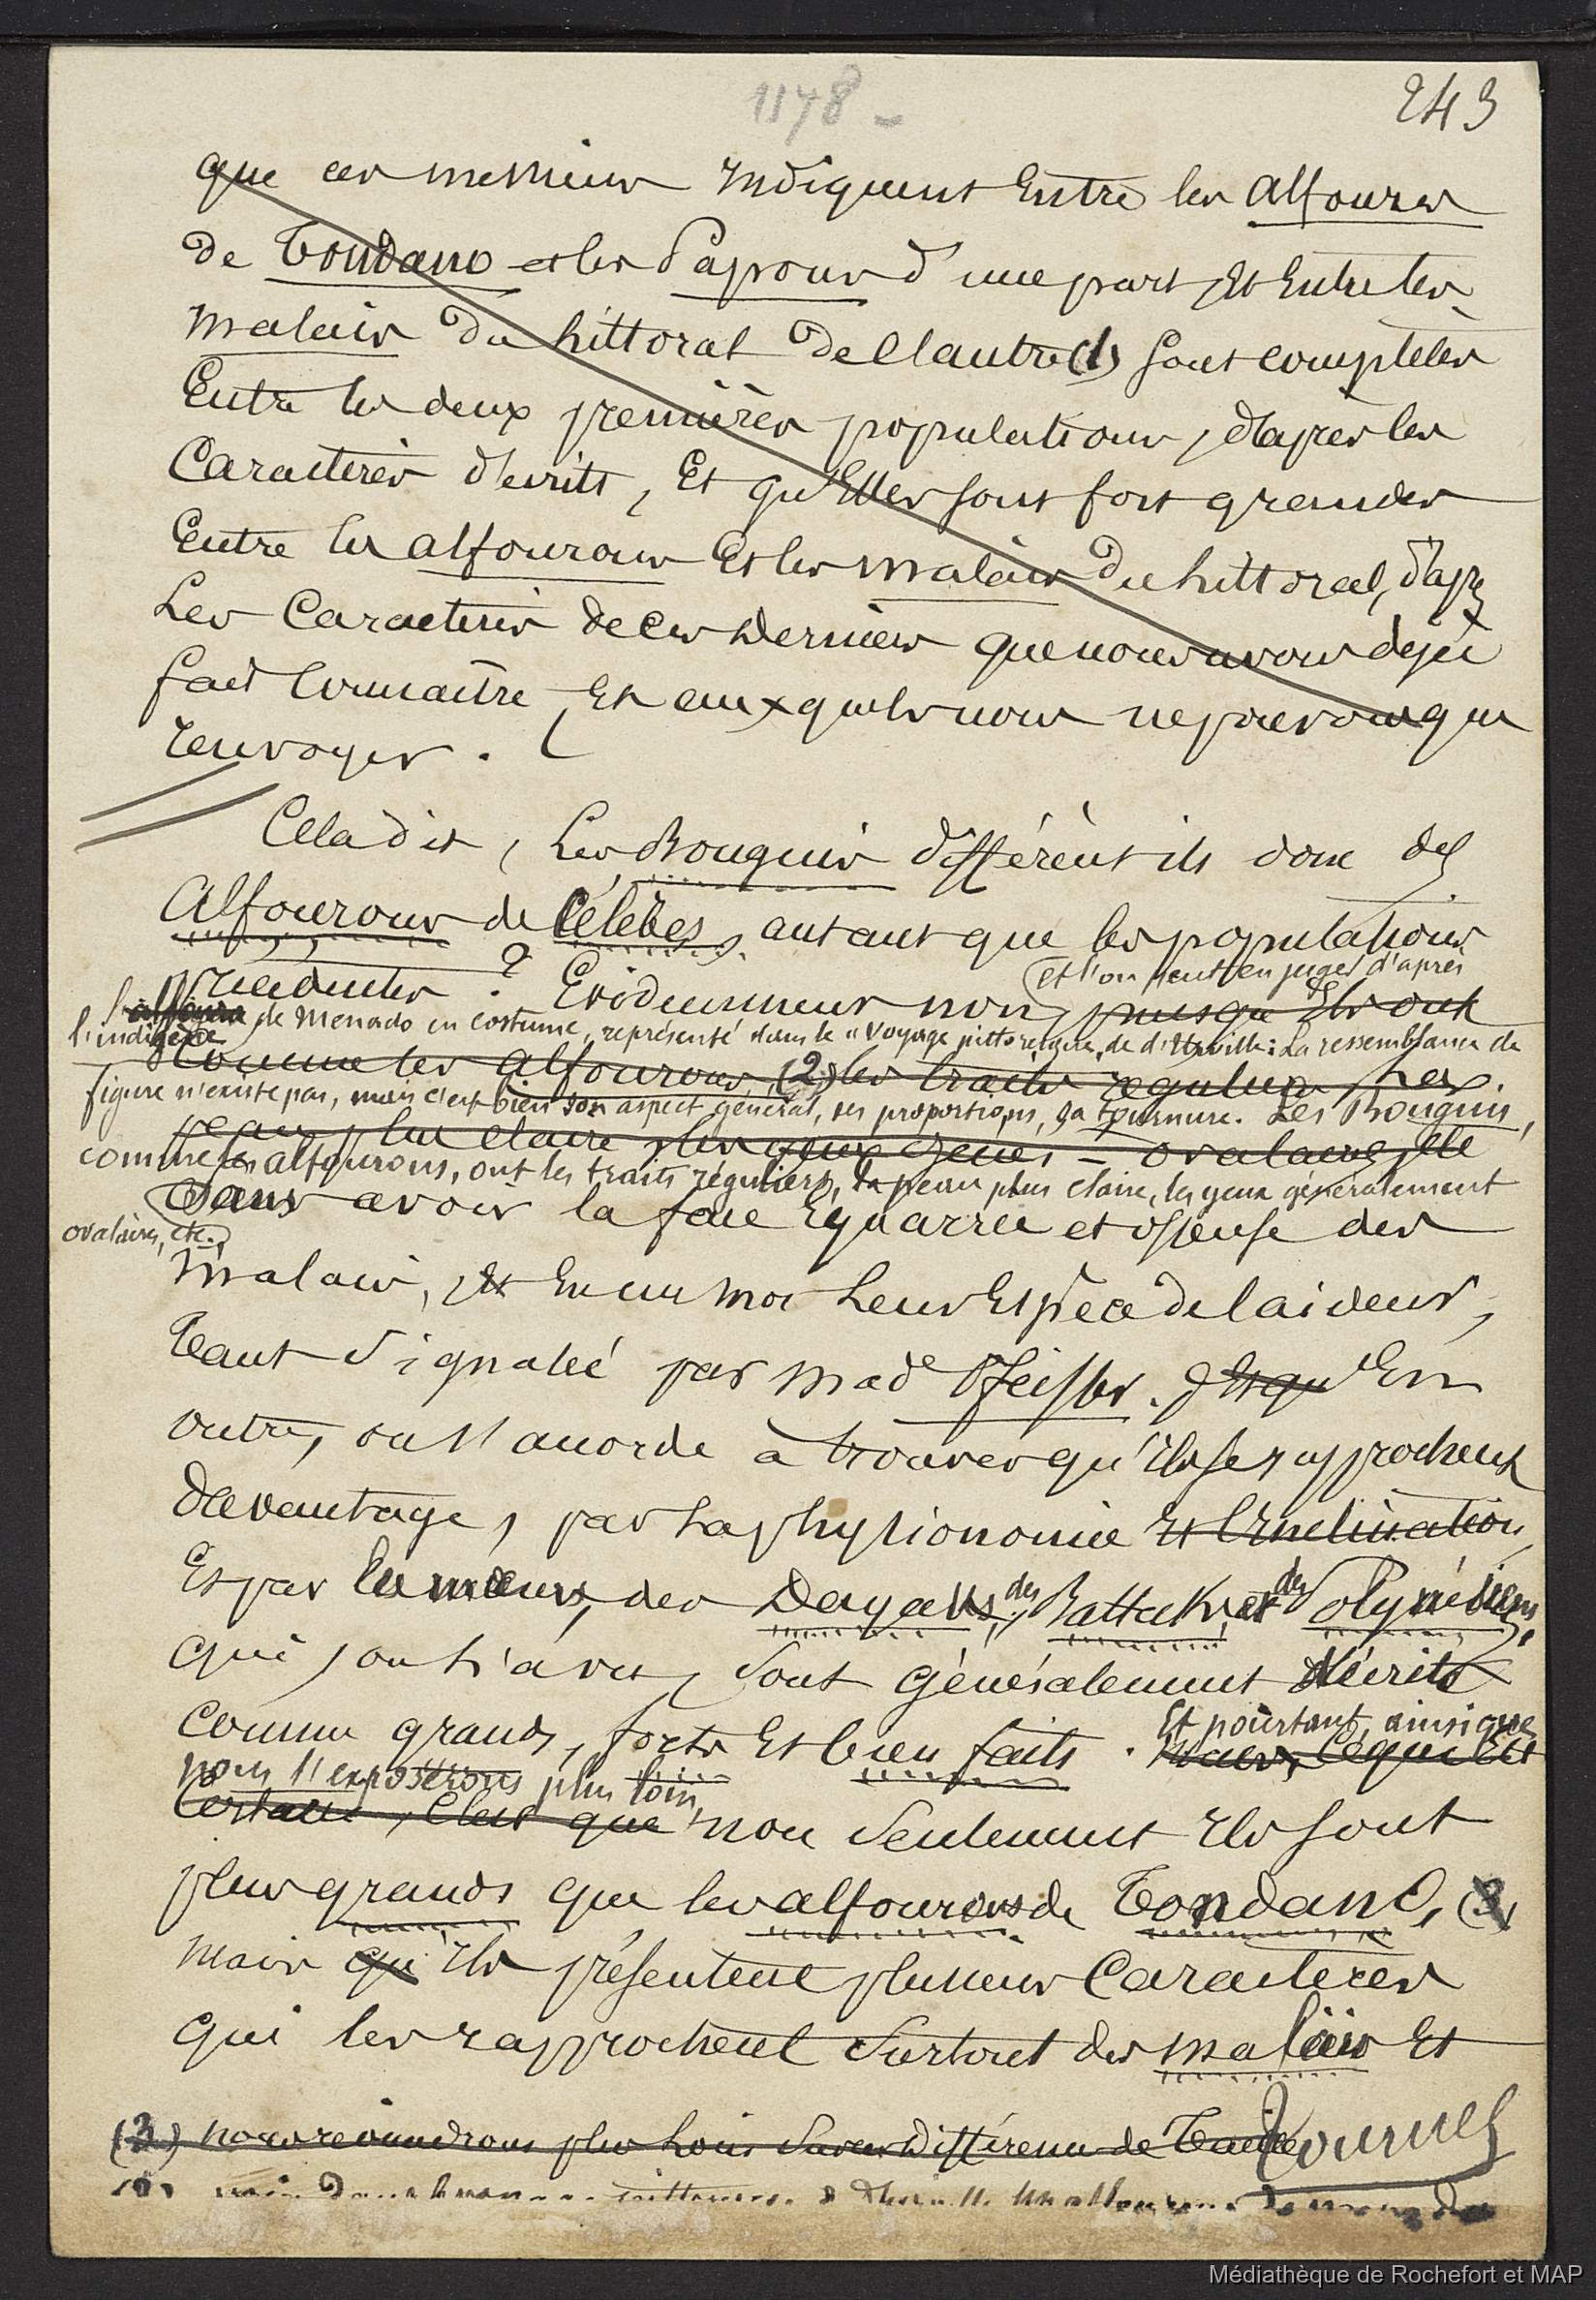 1178 -
243
que ces messieurs indiquent entre les Alfoures
de Tondano et les Papous d'une part, et entre les
Malais du littoral de l'autre (1) sont complètes
Entre les deux premières populations, d'après les
Caractères décrits, Et qu'elles sont fort grandes
Entre les Alfourous Et les Malais du littoral, d'après
Les Caractères de ces derniers que nous avons déjà
fait Connaître, Et auxquels nous ne pouvons que
renvoyer.
Cela dit, Les Bouguis diffèrent ils donc des
Alfourous de Célèbes, autant que les populations
précédentes ? Evidemment non, puisqu'ils ont
et l'on peut en juger d'après
l'indigène de Menado en costume, représenté dans le "Voyage pittoresque" de d'Urville: La ressemblance de
Comme les Alfourous, (2) les traits réguliers, la
figure n'existe pas, mais c'est bien son aspect général, ses proportions, sa tournure. Les Bouguis,
peau plus claire, les yeux - ovalaires, etc
comme les alfourous, ont les traits réguliers, la peau plus claire, les yeux généralement
ovalaires, etc.,
Sans avoir la face équarrie et osseuse des
Malais, Et En un mot Leur Espèce de laideur,
Tant signalée par Mad<sup>e</sup> Pfeiffer. Et qu'En
outre, on s'accorde à trouver qu'ils se rapprochent
davantage, par La physionomie Et l'inclination
Et par les mœurs, des Dayaks, des Battaks, et des Polynésiens,
qui, on l'a vu, sont généralement décrits
Comme grands, forts Et bien faits. Mais, Ce qui Est
Et pourtant, ainsi que
nous l'exposerons plus loin,
Certain, C'est que non seulement ils sont
plus grands que les alfourous de Tondano, (3)
Mais qu'ils présentent plusieurs Caractères
qui les rapprochent surtout des Malais Et
(3) nous reviendrons plus Loin sur ces différences de Taille
Tournez